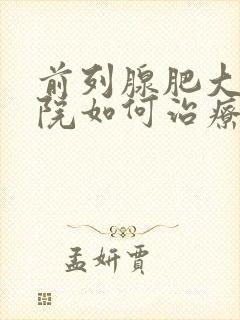 前列腺肥大
院如何治療
孟妍賈